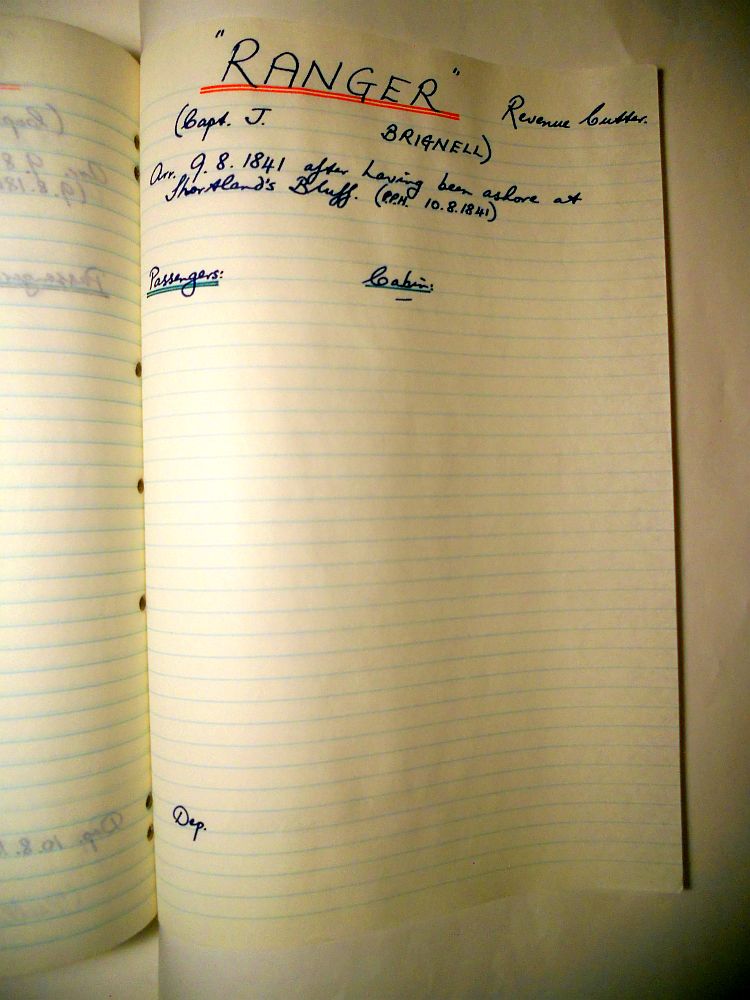 "RANGER" Revenue Cutter.
(Capt. J. BRIGNELL)
Arr. 9. 8. 1841 after having been ashore at
Shortland's Bluff. (P.P.H. 10.8.1841)
Passengers: Cabin:
Dep.
Dep. 10.8.